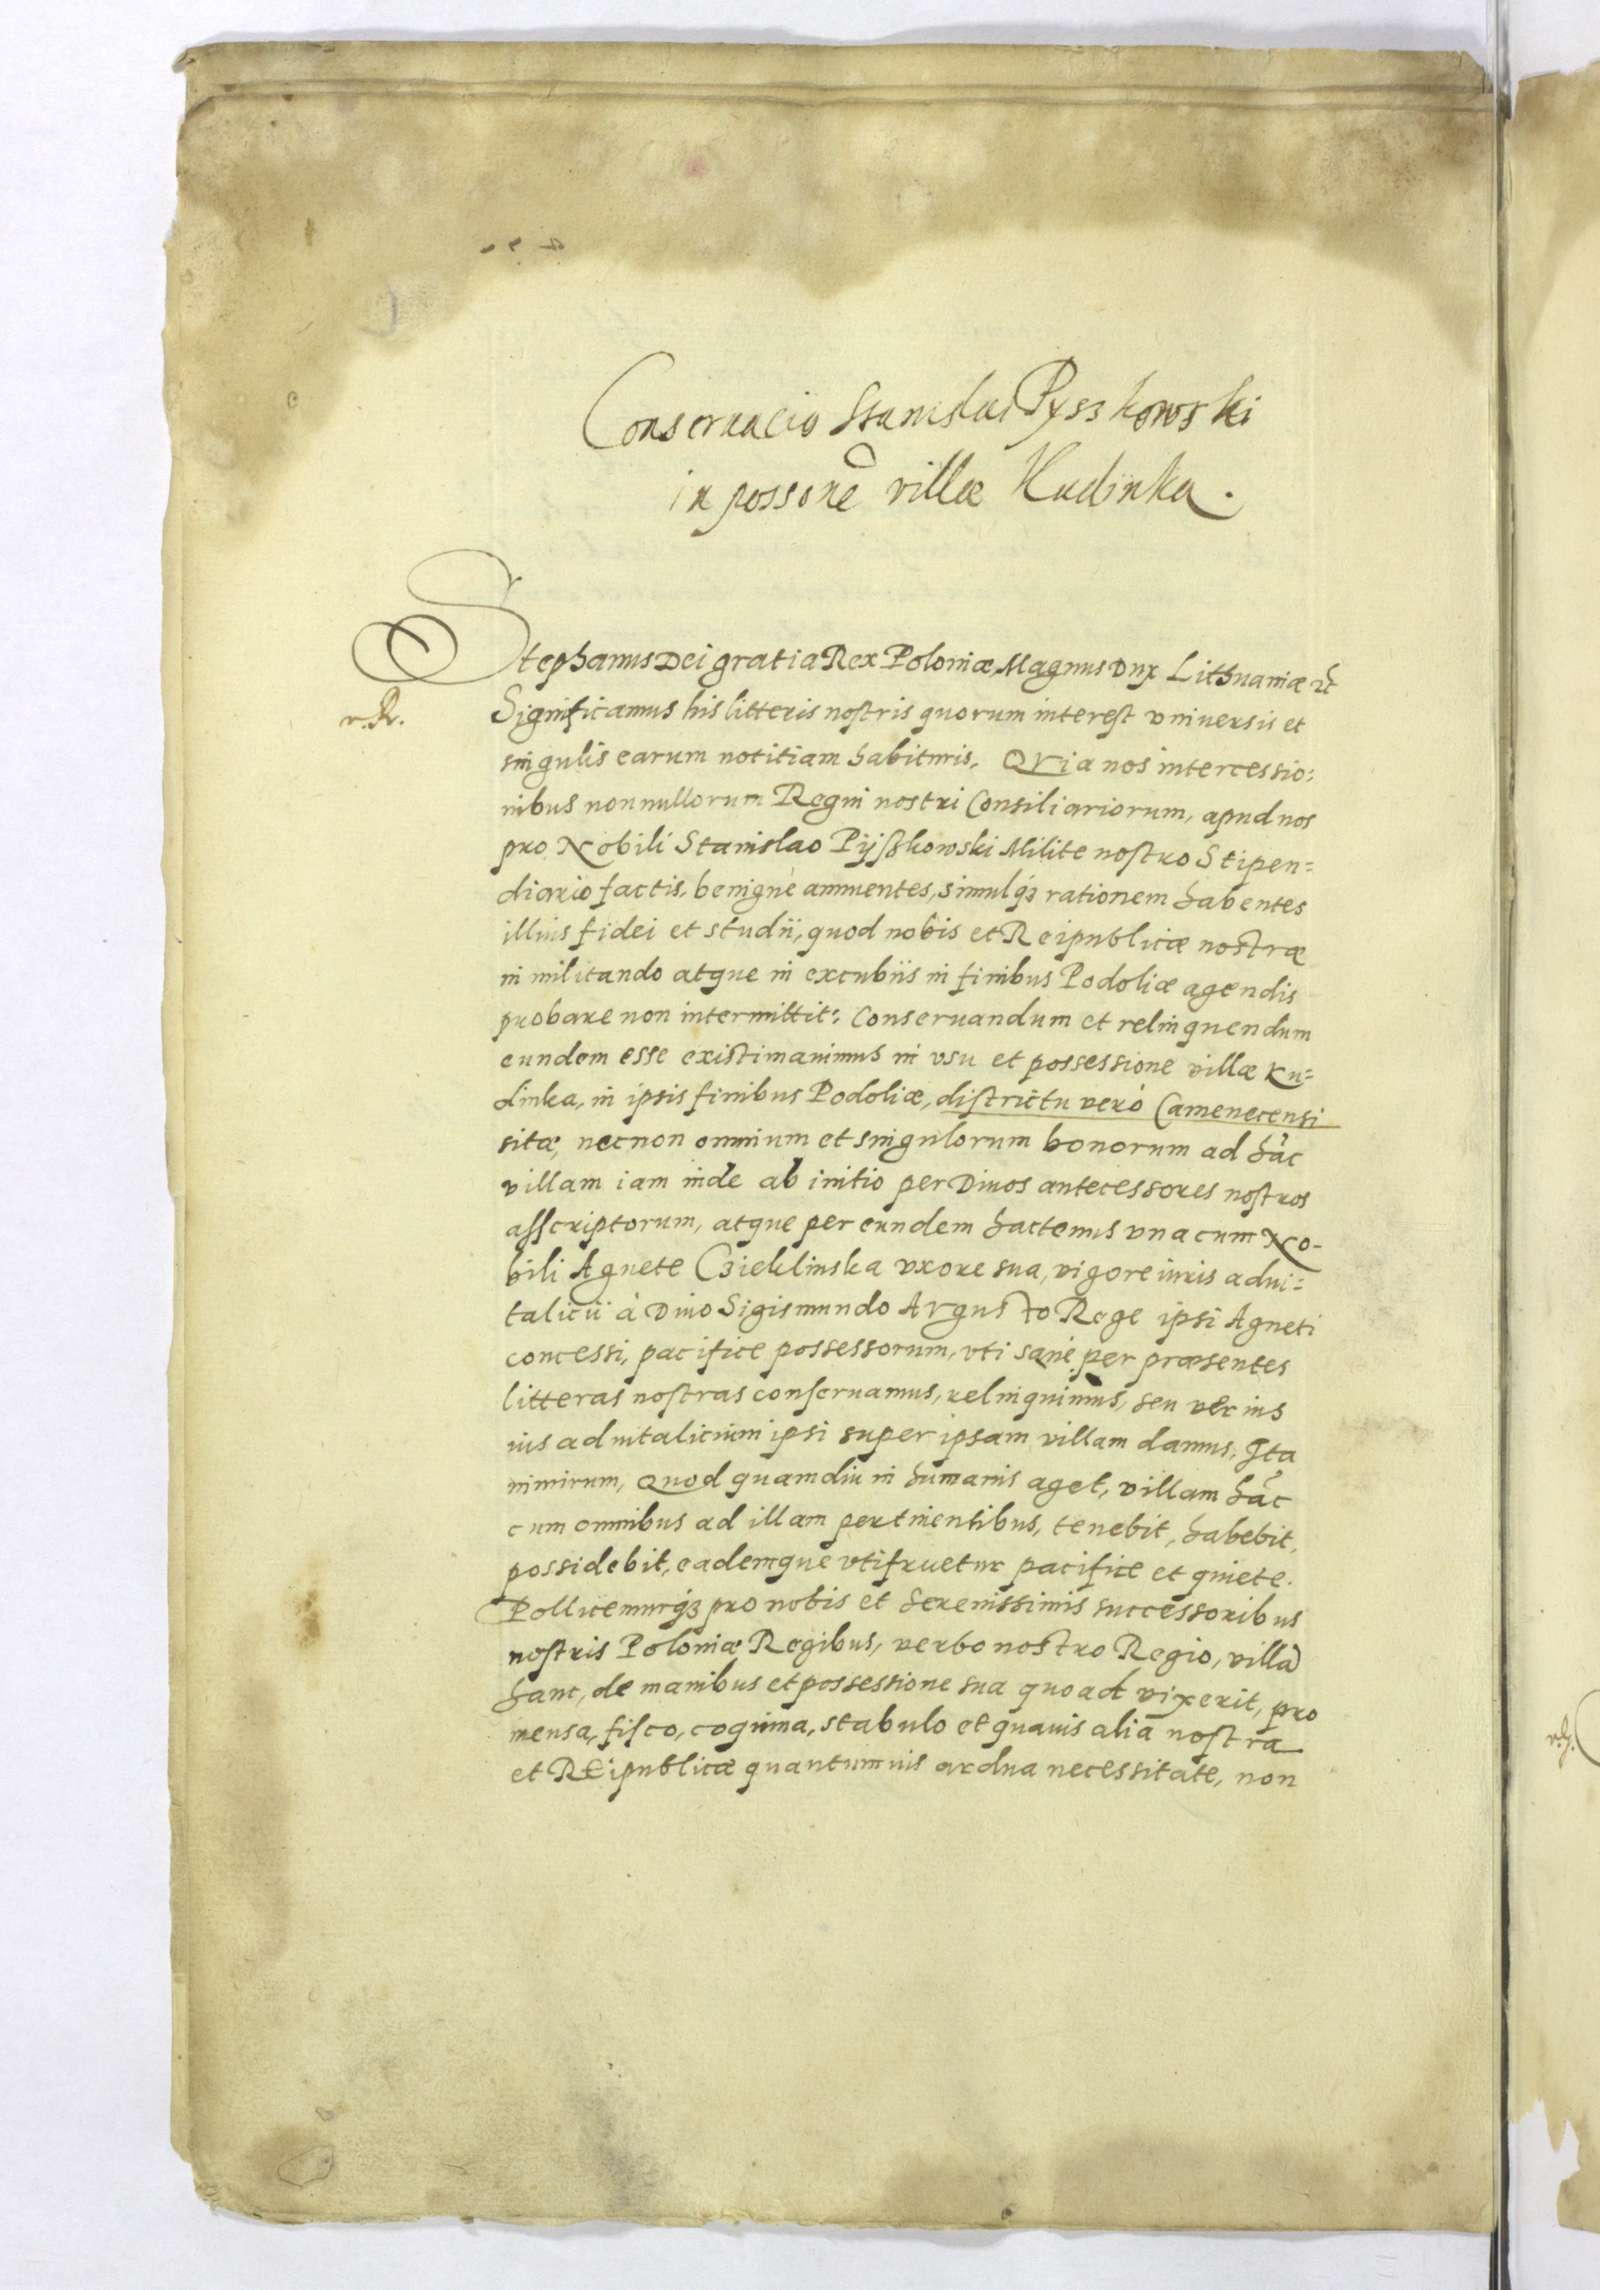 Conseruacio Stanislai Pyszkowski
in possonē villæ Kudinka.
Stephanus Dei gratia Rex Poloniæ, Magnus Dux Lithuaniæ etc
v. R.
Significamus his litteris nostris quorum interest vniuersis et
singulis earum notitiam habituris. QVia nos intercessio:
nibus nonnullorum Regni nostri Consiliariorum, apud nos
pro Nobili Stanislao Pyßkowski Milite nostro Stipen=
diario factis, benignè annuentes, simulq3 rationem habentes
illius fidei et studii, quod nobis et Reipublicæ nostræ
in militando atque in excubiis in finibus Podoliæ agendis
probare non intermittit: Conseruandum et relinquendum
eundem esse existimauimus in vsu et possessione villæ Ku=
dinka, in ipsis finibus Podoliæ, districtu verò Camenecensi
sitæ, necnon omnium et singulorum bonorum ad hāc
villam iam inde ab initio per Diuos antecessores nostros
asscriptorum, atque per eundem hactenus vna cum No-
bili Agnete Czieklinska vxore sua, vigore iuris adui=
talicii à Diuo Sigismundo AVgusto Rege ipsi Agneti
concessi, pacifice possessorum, vti sanè per præsentes
litteras nostras conseruamus, relinquimus, seu verius
ius aduitalicium ipsi super ipsam villam damus, Ita
nimirum, Quod quamdiu in humanis aget, villam hāc
cum omnibus ad illam pertinentibus, tenebit, habebit,
possidebit, eademque vtifruetur pacifice et quiete.
Pollicemurq3 pro nobis et Serenissimis successoribus
nostris Poloniæ Regibus, verbo nostro Regio, villā
hanc, de manibus et possessione sua quoad vixerit, pro
mensa, fisco, coquina, stabulo et quauis alia nostra
et REipublicæ quantumuis ardua necessitate, non